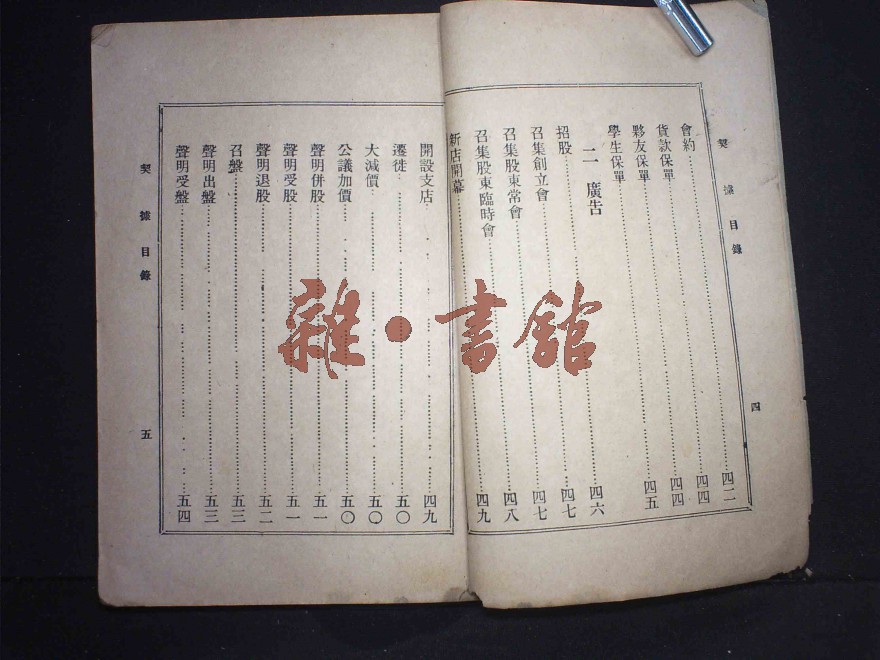 契據目錄 四
會約 四二
貨款保單 四四
夥友保單 四四
學生保單 四五
二 廣告 四六
招股 四七
召集創立會 四七
召集股東常會 四八
召集股東臨時會 四九
新店開幕
開設支店 四九
遷徙 五〇
大減價 五〇
公議加價 五〇
聲明併股 五一
聲明受股 五一
聲明退股 五二
召盤 五三
聲明出盤 五三
聲明受盤 五四
契據目錄 五
雜·書館